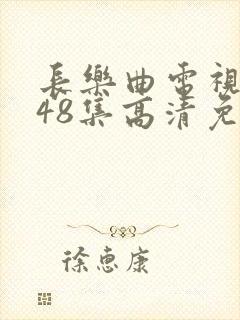 長樂曲電視
48集高清免
徐惠康